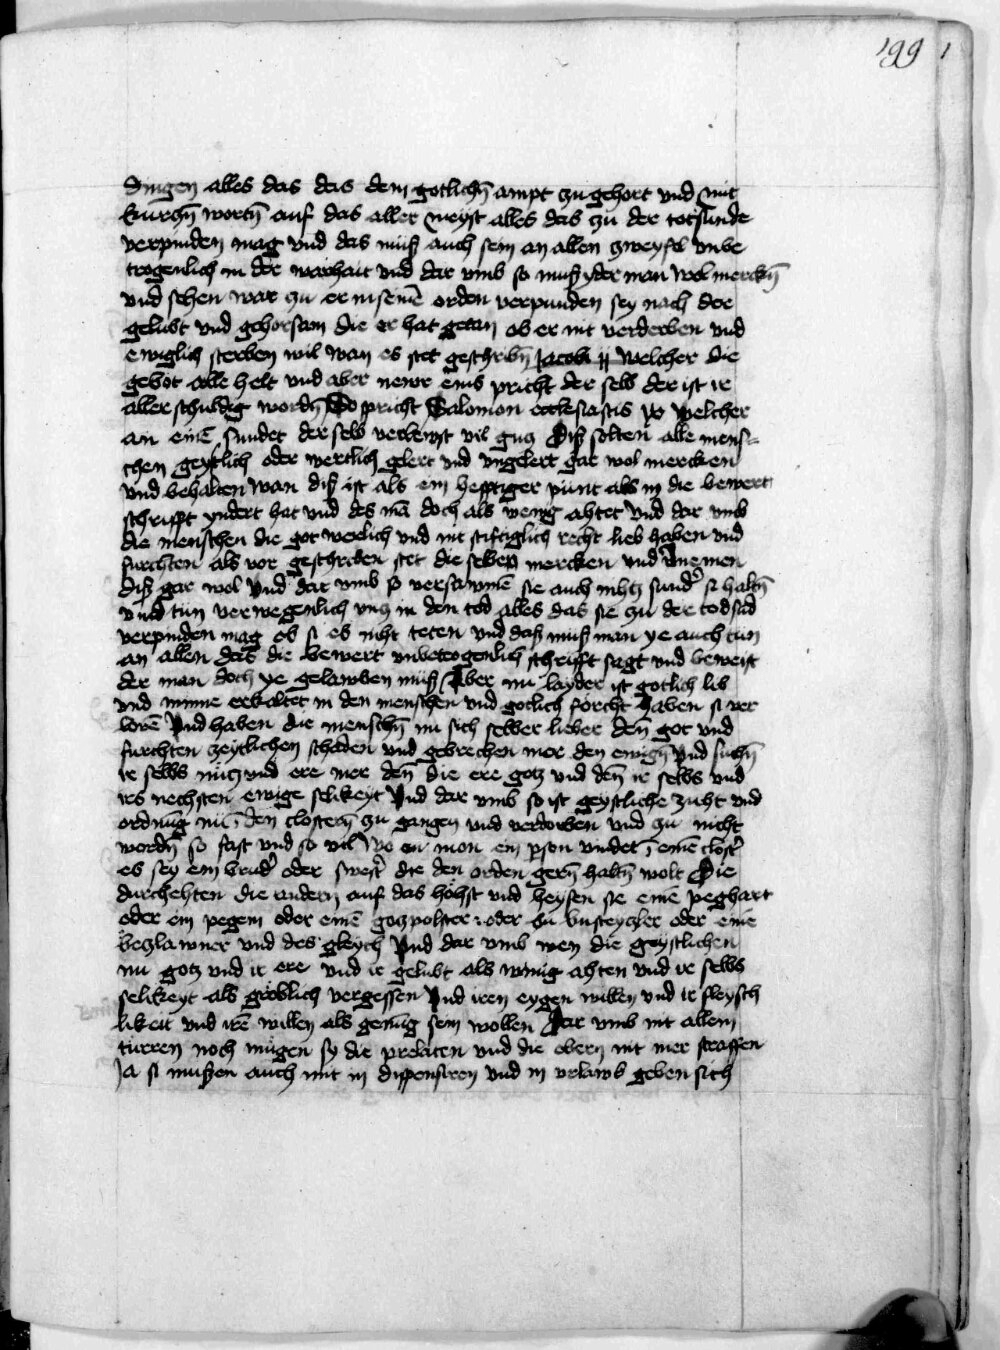 199
dingen alles das das dem gotlichñ ampt zu gehort vnd mit
kurczñ wortñ auf das aller meyst alles das zu der totsunde
verpinden mag vnd das muß auch sein an allen zweyfel vnbe
trogenlich in der warhait vnd dar vmb so muß yder man wol merckñ
vnd sehen war zu er in seinē orden verpunden sey nach der
gelubt vnd gehorsam die er hat getan ob er nit verderben vnd
ewiglich sterben wil wan es stet geschribñ Jacobi ij welcher die
gebot alle helt vnd aber newr eins pricht der selb der ist ir
aller schuldig wordñ So spricht Salomon ecclesiastis ix welcher
an einē sundet der selb verlewst vil gutz Diß solten alle mens-
schen geystlich oder wertlich gelert vnd vngelert gar wol mercken
vnd behalten wan diß ist als ein hefftiger punt als in die bewert
schrifft yndert hat vnd des mā doch als wenig ahtet vnd dar vmb
die menschen die got werlich vnd nit stiftiglich recht lieb haben vnd
furchten als vor geschreben stet die selben mercken vnd vernemen
diß gar wol vnd dar vmb so versawmē sie auch nihtz sundˀ si haltñ
vnd tun verwegenlich vntz in den tod alles das sie zu der todsūd
verpinden mag ob si es niht teten vnd daß muß man ye auch tun
an allen das die bewert vnbetrogenlich schrifft sagt vnd beweist
der man doch ye gelawben muß Aber nu layder ist gotlich lib
vnd minne erkaltet in den menschen vnd gotlich forcht haben si ver
lorē Vnd haben die menschñ nu sich selber lieber deñ got vnd
furchten zeytlichen schaden vnd gebrechen mer den ewigñ Vnd suchñ
ir selbs nutz vnd ere mer deñ die ere gotz vnd deñ ir selbs vnd
irs nechsten ewige selikeyt Vnd dar vmb so ist geystliche zucht vnd
ordnūg nu ī den clostern zu gangen vnd verdorben vnd zu nicht
wordñ so fast vnd so vil wo ein mon ein pson vindet ī einē clostˀ
es sey ein brudˀ oder swestˀ die den orden gerñ haltñ wolt Die
durchehten die andern auf das höhst vnd heysen sie einē peghart
oder ein pegein oder einē gotzpolster oder ein winsteyczler oder einē
beczlawner vnd des gleych Vnd dar vmb wen die geystlichen
nu gotz vnd ir ere vnd ir gelubt als winig ahten vnd ir selbs
selikeyt als gröblich vergessen Vnd iren eygen willen vnd ir fleysch
likeit vnd irē willen als genūg sein wollen Dar vmb nit allein
turren noch mügen sy die prelaten vnd die obern nit mer straffen
Ja si mußen auch mit in dispensiren vnd in vrlawb geben sich